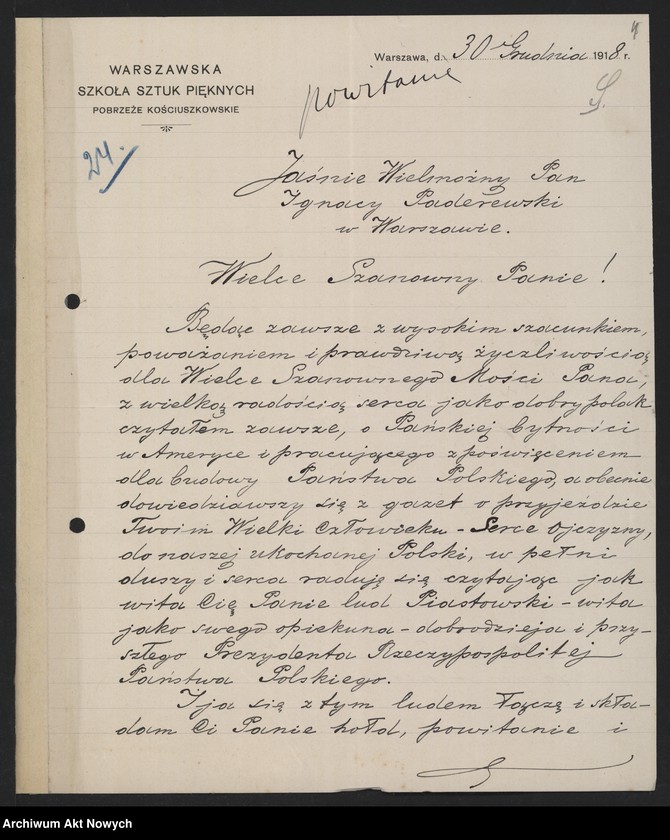 4
Warszawa, d. 30 Grudnia 1918 r.
WARSZAWSKA
SZKOŁA SZTUK PIĘKNYCH
POBRZEŻE KOŚCIUSZKOWSKIE
powitanie
24.
Jaśnie Wielmożny Pan
Ignacy Paderewski
w Warszawie.
Wielce Szanowny Panie!
Będąc zawsze z wysokim szacunkiem,
poważaniem i prawdziwą życzliwością
dla Wielce Szanownego Mości Pana,
z wielką radością serca jako dobry polak
czytałem zawsze, o Pańskiej bytności
w Ameryce i pracującego z poświęceniem
dla budowy Państwa Polskiego, a obecnie
dowiedziawszy się z gazet o przyjeździe
Twoim Wielki Człowieku - Serce Ojczyzny,
do naszej ukochanej Polski, w pełni
duszy i serca raduję się czytając jak
wita Cię Panie lud Piastowski - wita
jako swego opiekuna - dobrodzieja i przy-
szłego Prezydenta Rzeczypospolitej
Państwa Polskiego.
I ja się z tym ludem łączę i skła-
dam Ci Panie hołd, powitanie i
Archiwum Akt Nowych